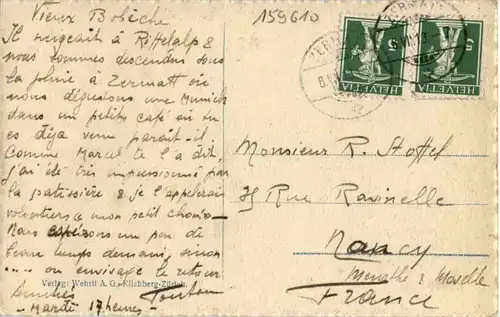 159610
ZERMATT
HELVETIA
5
HELVETIA
5
Vieux Bobèche
Il neigeait à Riffelalp &
nous sommes descendus sous
la pluie à Zermatt où
nous dégustons une Munich
dans un petits café où tu
es déja venu parait-il.
Comme Marcel te l'a dit,
j'ai été très impressionné par
la patissière & je l'appelerais
volontiers « mon petit choux »
Mais espérons un peu de
beau temps demain, sinon
.... on envisage le retour
Amitiés Tonton
- Mardi 17 heures -
Monsieur R. Stoffel
Rue Ravinelle
Nancy
Meurthe & Moselle
France
Verlag: Wehrli A. G., Kilchberg-Zürich.